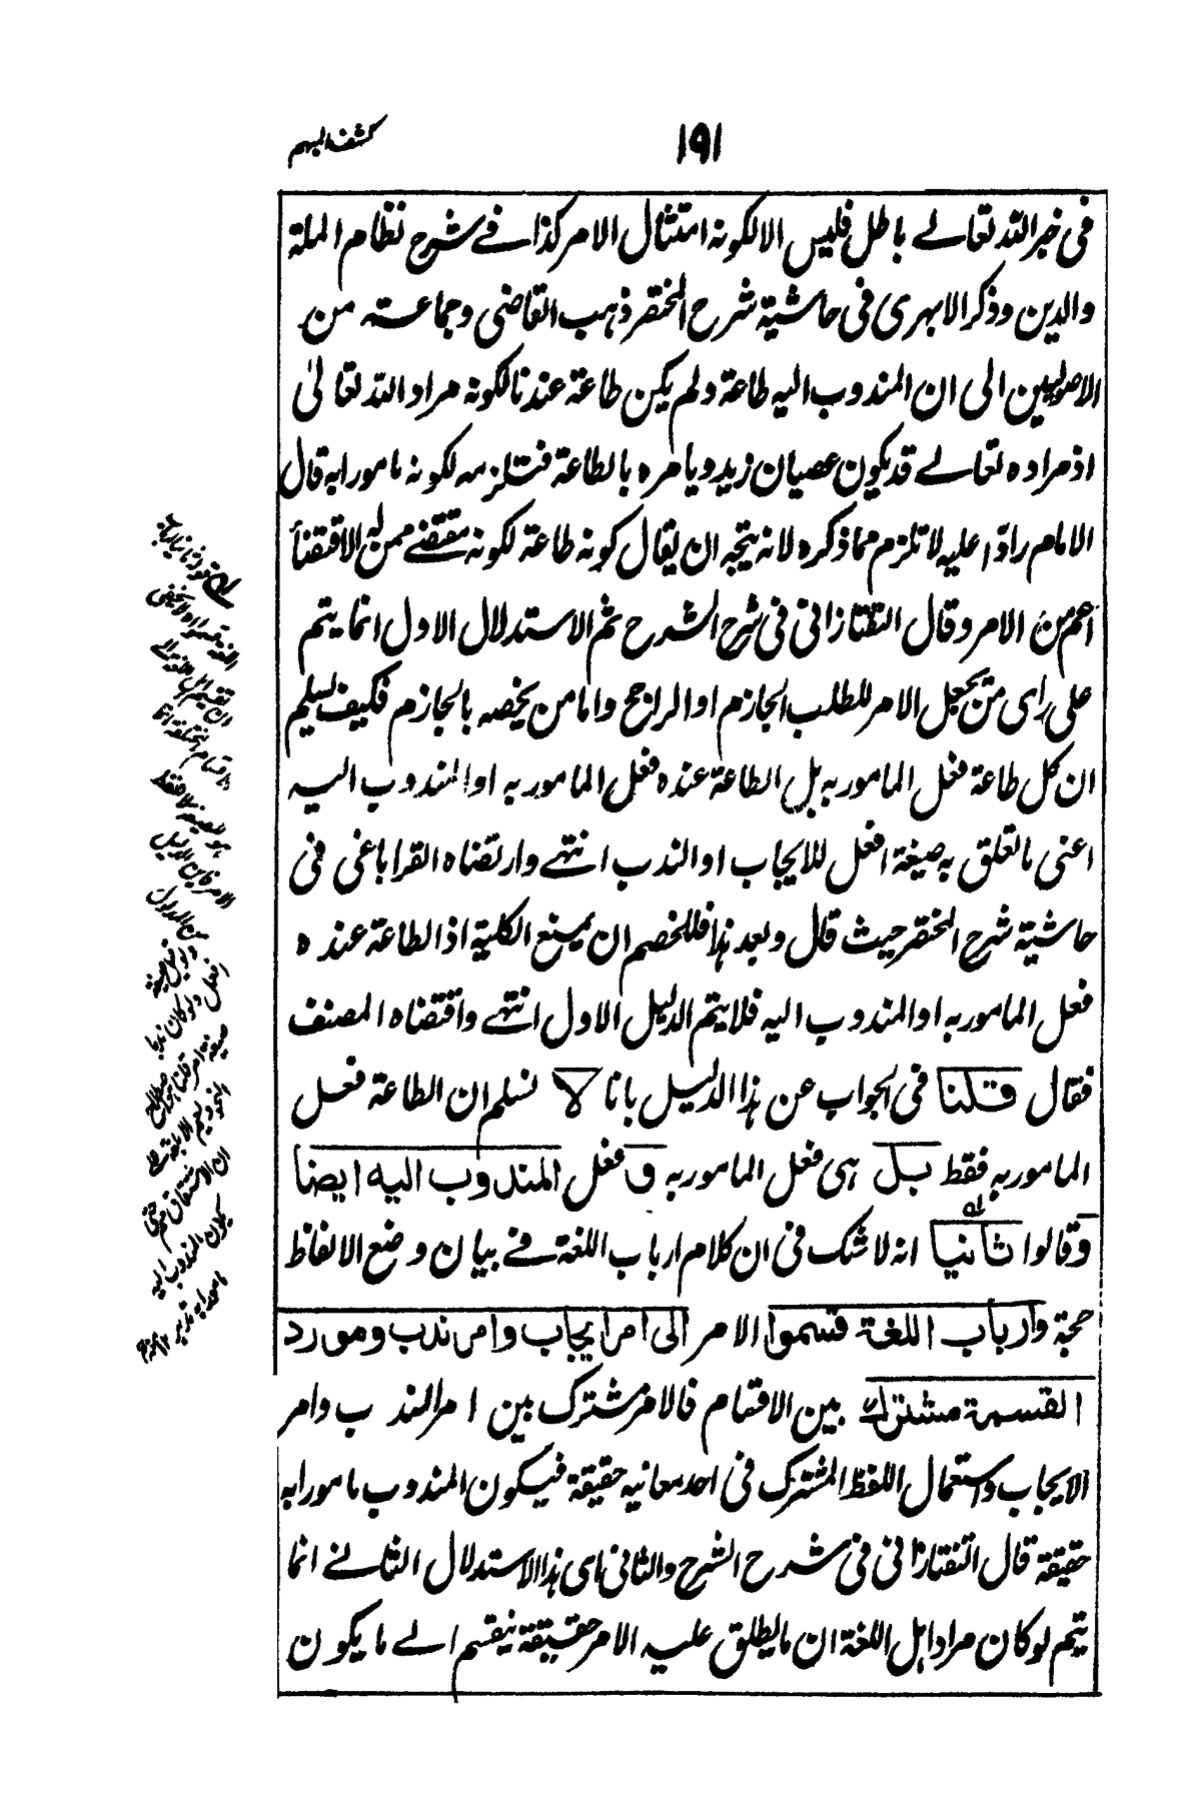 كشف المبهم
١٩١
فى خبر الله تعالے باطل فليس الا لكونه امتثال الامر كذا فے شرح نظام الملة
والدين وذكر الابهرى فى حاشية شرح المختصر ذهب القاضى وجماعته من
الاصوليين الى ان المندوب اليه طاعة ولم يكن طاعة عندنا لكونه مراد الله تعالىٰ
اذ مراده تعالے قد يكون عصيان زيد ويامره بالطاعة فتلزمه لكونه مامورا به قال
الامام رادّا عليه لا تلزم مما ذكره لانه يتجه ان يقال كونه طاعة لكونه مقتضے ممن له الاقتضاء
اعم من الامر وقال التفتازانى فى شرح الشرح ثم الاستدلال الاول انما يتم
على راى من يجعل الامر للطلب الجازم او الراجح واما من يخصه بالجازم فكيف يسلم
ان كل طاعة فعل المامور به بل الطاعة عنده فعل المامور به او المندوب اليه
اعنى ما تعلق به صيغة افعل للايجاب او الندب انتهے وارتضاه القراباغى فى
حاشية شرح المختصر حيث قال وبعد هذا فللخصم ان يمنع الكلية اذ الطاعة عنده
فعل المامور به او المندوب اليه فلا يتم الدليل الاول انتهے واقتضاه المصنف
فقال قلنا فى الجواب عن هذا الدليل بانا لا نسلم ان الطاعة فعل
المامور به فقط بل هى فعل المامور به و فعل المندوب اليه ايضا
وقالوا ثانيا انه لا شك فى ان كلام ارباب اللغة فے بيان وضع الالفاظ
حجة وارباب اللغة قسموا الامر الى امر ايجاب وامر ندب ومورد
القسمة مشترك بين الاقسام فالامر مشترك بين امر الندب وامر
الايجاب واستعمال اللفظ المشترك فى احد معانيه حقيقة فيكون المندوب مامورا به
حقيقة قال التفتازانى فى شرح الشرح والثانى اى هذا الاستدلال الثانے انما
يتم لو كان مراد اهل اللغة ان ما يطلق عليه الامر حقيقة ينقسم الے ما يكون